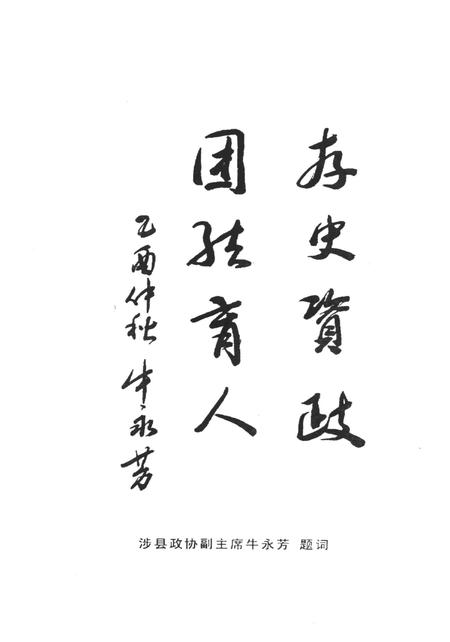 存史資政
团结育人
乙酉仲秋 牛永芳
涉县政协副主席牛永芳 题词